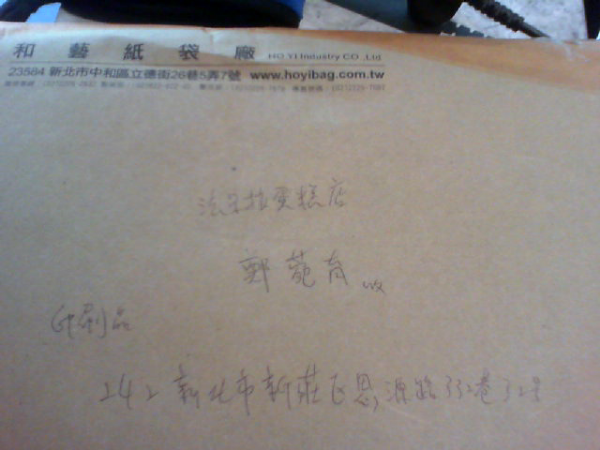 和藝紙袋廠 HO YI Industry CO .,Ltd
23584 新北市中和區立德街26巷5弄7號 www.hoyibag.com.tw
蛋糕店
鄭苑育 收
印刷品
242 新北市新莊區思源路332巷32號